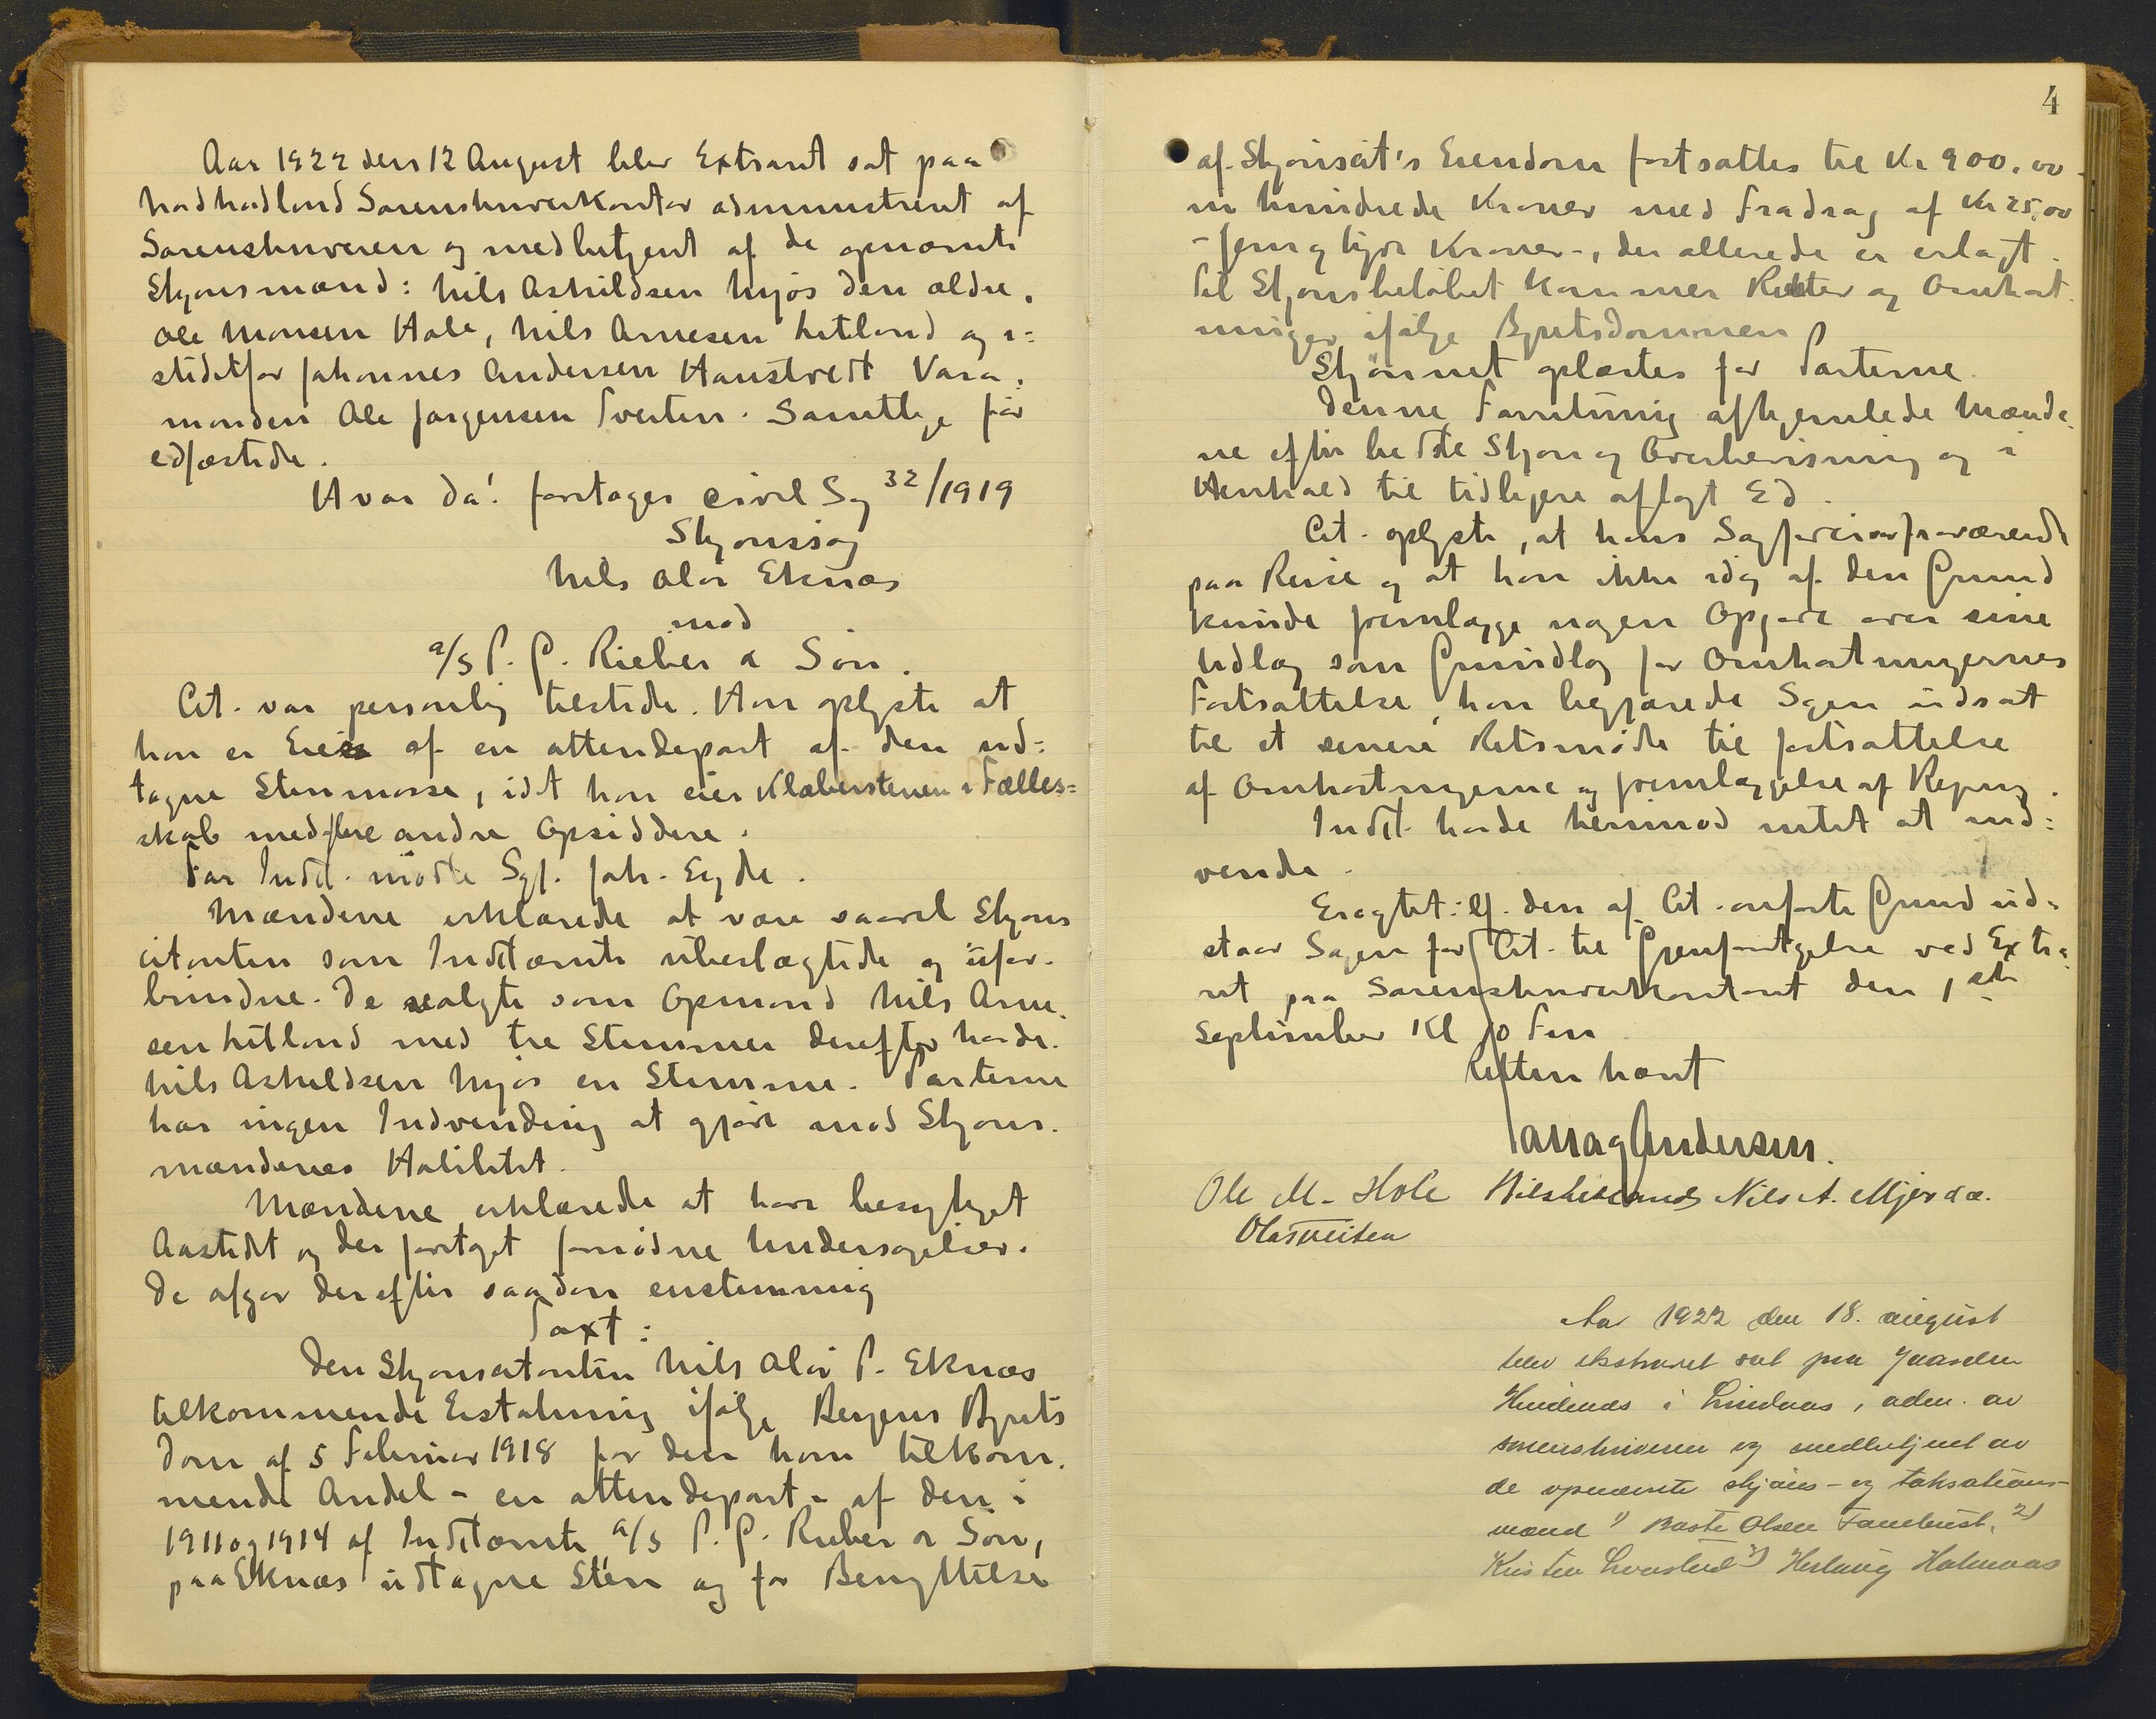 Aar 1922 den 12 August blev Extraret sat paa
Nordhordland Sorenskriverkontor administreret af
Sorenskriveren og medbetjent af de opnævnte
Skjønsmænd: Nils Askildsen Mjøs den ældre,
Ole Monsen Hole, Nils Arnesen Litland og i=
stedetfor Johannes Andersen Haustvedt Vara,
manden Ole Jørgensen Tveiten. Samtlige før
edfæstede.
Hvor da! foretages civil Sag 32/1919
Skjønssag
Nils Olai Eknæs
mod
a/s P. G. Rieber & Søn.
Cit. var personlig tilstede. Han oplyste at
han er Eier af en attendepart af den ud=
tagne Stenmasse, idet han eier Klæberstenen i Fælles=
skab med flere andre Opsiddere.
For Indst. mødte Sgf. Joh. Eyde.
Mændene erklærede at være saavel Skjøns
citanten som Indstævnte ubeslægtede og ufor-
bundne. De valgte som Opmand Nils Arne,
sen Litland med tre Stemmer derefter havde
Nils Askildsen Mjøs en Stemme. Parterne
har ingen Indvending at gjøre mod Skjøns-
mændenes Habilitet.
Mændene erklærede at have besigtiget
Aastedet og der foretaget fornødne Undersøgelser.
De afgav derefter saadan enstemmig
Taxt:
Den Skjønscitanten Nils Olai P. Eknæs
tilkommende Erstatning ifølge Bergens Byrets
Dom af 5 Februar 1918 for den ham tilkom,
mende Andel - en attendepart - af den i
1911 og 1914 af Indstævnte a/s P. G. Rieber & Søn,
paa Eknæs udtagne Sten og for Benyttelse
4
af Skjønscit's Eiendom fastsættes til Kr 900.00
ni hundrede Kroner med Fradrag af Kr 25,00
- fem og tyve Kroner -, der allerede er erlagt.
Til Skjønsbeløbet kommer Renter og Omkost
ninger ifølge Byretsdommen
Skjønnet oplæstes for Parterne.
Denne Forretning afhjemlede Mænde,
ne efter bedste Skjøn og Overbevisning og i
Henhold til tidligere aflagt Ed.
Cit. oplyste, at hans Sagfører var fraværende
paa Reise og at han ikke idag af den Grund
kunde fremlægge nogen Opgave over sine
Udlæg som Grundlag for Omkostningernes
Fastsættelse, han begjærede Sagen udsat
til et senere Retsmøde til fastsættelse
af Omkostningerne og fremlæggelse af Regning.
Indst. havde herimod intet at ind=
vende.
Eragtet: Ef. den af Cit. anførte Grund ud=
staar Sagen for Cit. til Gjenforetagelse ved Extra
ret paa Sorenskriverkontoret den 1ste
September Kl 10 Fm
Retten hævet
Andersen.
Ole M. Hole Nils Litland Nils A. Mjøs d.æ.
Ola Tveiten
Aar 1922 den 18. august
blev ekstraret sat paa gaarden
Hundenes i Lindaas, adm. av
sorenskriveren og medbetjent av
de opnævnte skjøns- og taksations-
mænd 1) Baste Olsen Fammestad, 2)
Kristen 3) Henning Halmaas